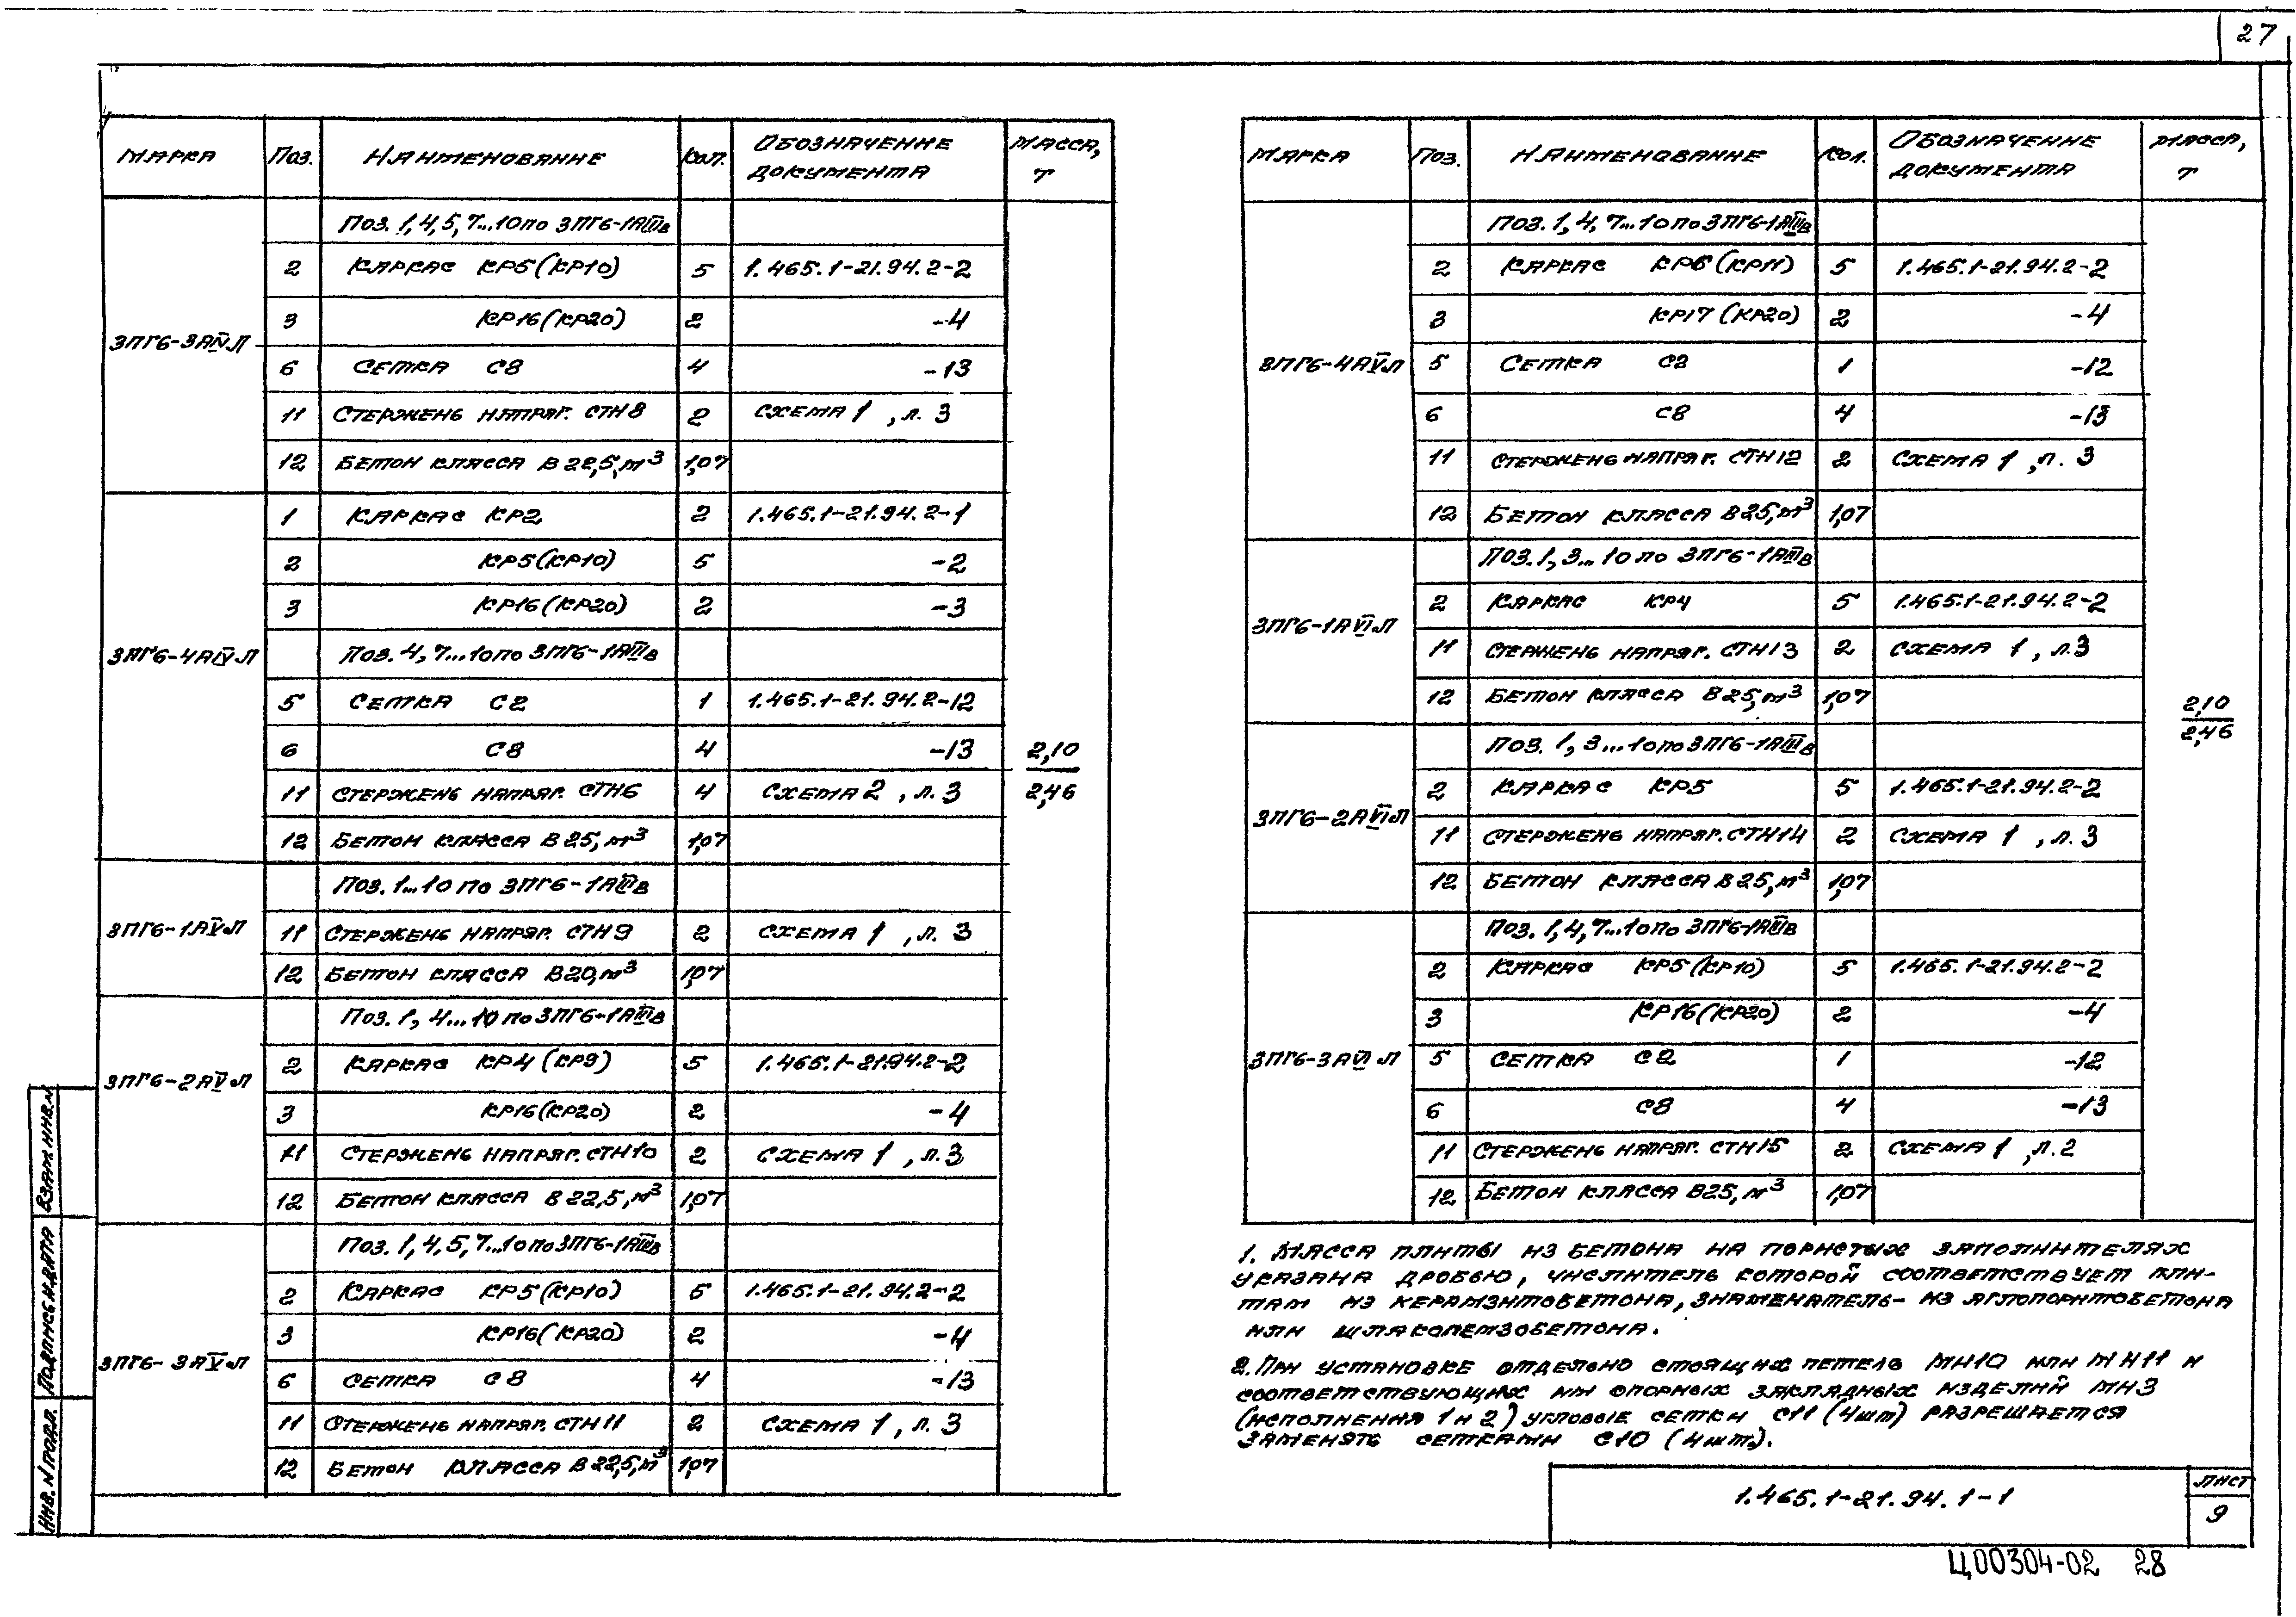 27
МАРКА Поз. НАИМЕНОВАНИЕ Кол. ОБОЗНАЧЕНИЕ ДОКУМЕНТА МАССА, Т
3ПГ6-3АIVЛ
Поз. 1,4,5,7...10 по 3ПГ6-1АIIIв
2 КАРКАС КР5(КР10) 5 1.465.1-21.94.2-2
3 КР16(КР20) 2 -4
6 СЕТКА С8 4 -13
11 СТЕРЖЕНЬ НАПРЯГ. СТН8 2 СХЕМА 1, Л. 3
12 БЕТОН КЛАССА В22,5, м³ 1,07
3ПГ6-4АIVЛ
1 КАРКАС КР2 2 1.465.1-21.94.2-1
2 КР5(КР10) 5 -2
3 КР16(КР20) 2 -3
Поз. 4,7...10 по 3ПГ6-1АIIIв
5 СЕТКА С2 1 1.465.1-21.94.2-12
6 С8 4 -13
11 СТЕРЖЕНЬ НАПРЯГ. СТН6 4 СХЕМА 2, Л. 3
12 БЕТОН КЛАССА В25, м³ 1,07
2,10
2,46
3ПГ6-1АVЛ
Поз. 1...10 по 3ПГ6-1АIIIв
11 СТЕРЖЕНЬ НАПРЯГ. СТН9 2 СХЕМА 1, Л. 3
12 БЕТОН КЛАССА В20, м³ 1,07
3ПГ6-2АVЛ
Поз. 1, 4...10 по 3ПГ6-1АIIIв
2 КАРКАС КР4 (КР9) 5 1.465.1-21.94.2-2
3 КР16(КР20) 2 -4
11 СТЕРЖЕНЬ НАПРЯГ. СТН10 2 СХЕМА 1, Л.3
12 БЕТОН КЛАССА В22,5, м³ 1,07
3ПГ6-3АVЛ
Поз. 1,4,5,7...10 по 3ПГ6-1АIIIв
2 КАРКАС КР5(КР10) 5 1.465.1-21.94.2-2
3 КР16(КР20) 2 -4
6 СЕТКА С8 4 -13
11 СТЕРЖЕНЬ НАПРЯГ. СТН11 2 СХЕМА 1, Л. 3
12 БЕТОН КЛАССА В22,5, м³ 1,07
МАРКА Поз. НАИМЕНОВАНИЕ Кол. ОБОЗНАЧЕНИЕ ДОКУМЕНТА МАССА, Т
3ПГ6-4АVЛ
Поз. 1,4,7...10 по 3ПГ6-1АIIIв
2 КАРКАС КР6(КР11) 5 1.465.1-21.94.2-2
3 КР17(КР20) 2 -4
5 СЕТКА С2 1 -12
6 С8 4 -13
11 СТЕРЖЕНЬ НАПРЯГ. СТН12 2 СХЕМА 1, Л. 3
12 БЕТОН КЛАССА В25, м³ 1,07
3ПГ6-1АVIЛ
Поз. 1, 3...10 по 3ПГ6-1АIIIв
2 КАРКАС КР4 5 1.465.1-21.94.2-2
11 СТЕРЖЕНЬ НАПРЯГ. СТН13 2 СХЕМА 1, Л.3
12 БЕТОН КЛАССА В25, м³ 1,07
2,10
2,46
3ПГ6-2АVIЛ
Поз. 1, 3...10 по 3ПГ6-1АIIIв
2 КАРКАС КР5 5 1.465.1-21.94.2-2
11 СТЕРЖЕНЬ НАПРЯГ. СТН14 2 СХЕМА 1, Л.3
12 БЕТОН КЛАССА В25, м³ 1,07
3ПГ6-3АVIЛ
Поз. 1,4,7...10 по 3ПГ6-1АIIIв
2 КАРКАС КР5(КР10) 5 1.465.1-21.94.2-2
3 КР16(КР20) 2 -4
5 СЕТКА С2 1 -12
6 С8 4 -13
11 СТЕРЖЕНЬ НАПРЯГ. СТН15 2 СХЕМА 1, Л.2
12 БЕТОН КЛАССА В25, м³ 1,07
1. МАССА ПЛИТЫ ИЗ БЕТОНА НА ПОРИСТЫХ ЗАПОЛНИТЕЛЯХ
УКАЗАНА ДРОБЬЮ, ЧИСЛИТЕЛЬ КОТОРОЙ СООТВЕТСТВУЕТ ПЛИ-
ТАМ ИЗ КЕРАМЗИТОБЕТОНА, ЗНАМЕНАТЕЛЬ- ИЗ АГЛОПОРИТОБЕТОНА
ИЛИ ШЛАКОПЕМЗОБЕТОНА.
2. ПРИ УСТАНОВКЕ ОТДЕЛЬНО СТОЯЩИХ ПЕТЕЛЬ МН10 ИЛИ МН11 И
СООТВЕТСТВУЮЩИХ ИМ ОПОРНЫХ ЗАКЛАДНЫХ ИЗДЕЛИЙ МН3
(ИСПОЛНЕНИЯ 1 и 2) УГЛОВЫЕ СЕТКИ С11 (4шт) РАЗРЕШАЕТСЯ
ЗАМЕНЯТЬ СЕТКАМИ С10 (4шт).
ИНВ. N ПОДЛ. ПОДПИСЬ И ДАТА ВЗАМ. ИНВ. N
1.465.1-21.94.1-1
ЛИСТ
9
Ц00304-02 28